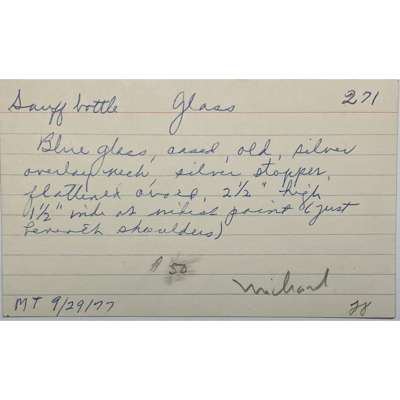 Snuff bottle Glass 271
Blue glass, cased, old, silver
overlay neck, silver stopper,
flattened ovoid, 2½" high
1½" wide at widest point (just
beneath shoulders)
$50
Michael
MT 9/29/77